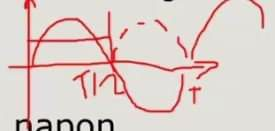 T/2 T
napon